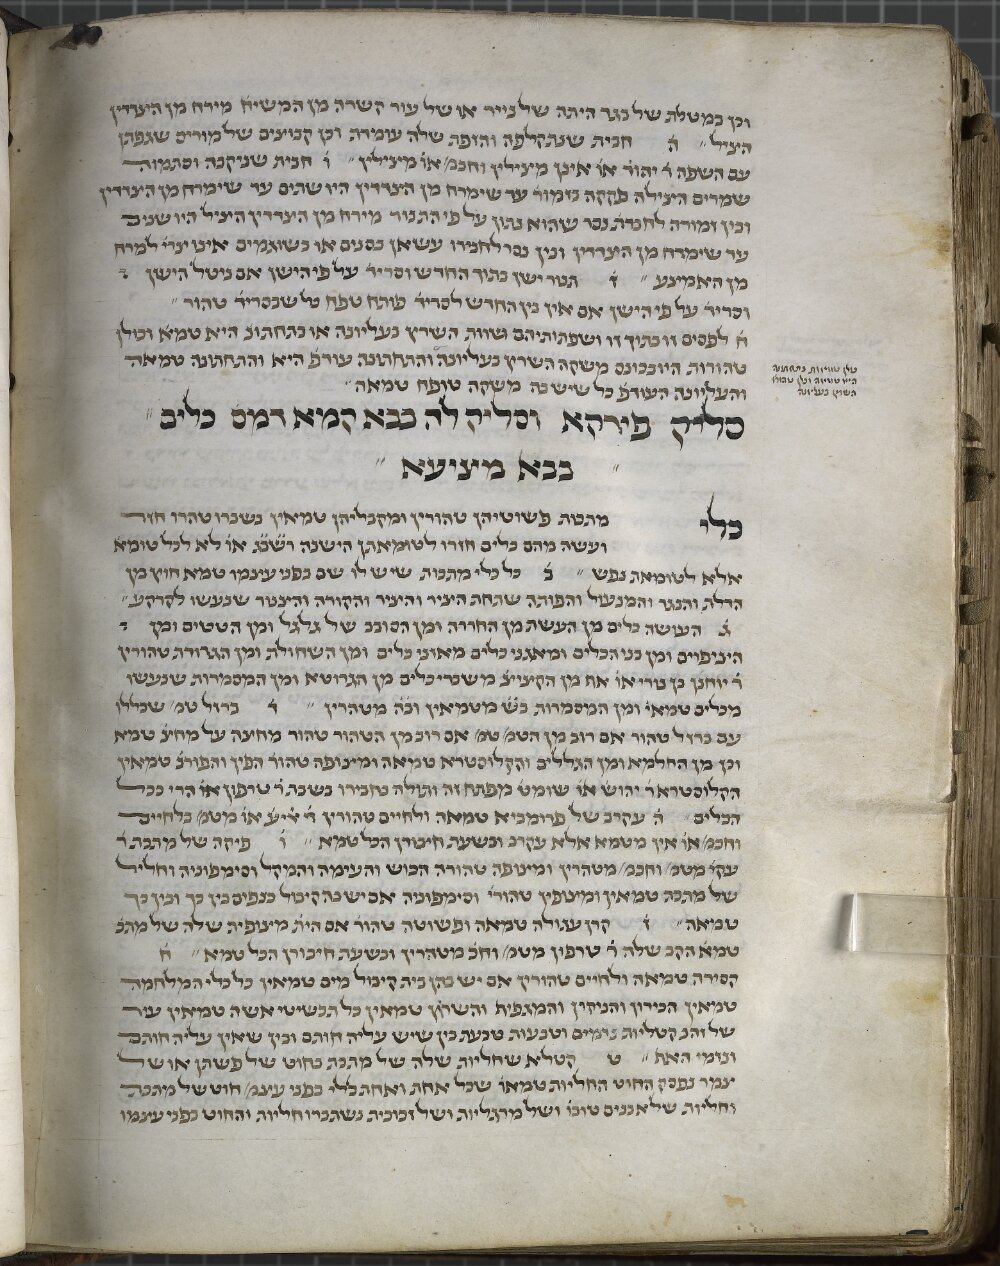 וכן במטלת של בגד היתה של נייר או של עור קשרה מן המשיח׳ מירח מן הצדדין
הציל ״ ה חבית שנתקלפה והזפת שלה עומדת וכן קבוצים של מוריס שגפתן
עם השפה ר׳ יהוד׳ או׳ אינן מצילין וחכמ׳ או׳ מצילין ״ ו חבית שניקבה וסתמוה
שמרים הצילה פקקה בזמור׳ עד שימרח מן הצדדין היו שתים עד שימרח מן הצדדין
ובין זמורה לחברת׳ נסר שהוא נתון על פי התנור מירח מן הצדדין הציל היו שנים
עד שימרח מן הצדדין ובין נסר לחבירו עשאן בסנים או בשוגמים אינו צרי׳ למרח
מן האמצע ״ ז תנור ישן בתוך החדש וסריד׳ על פי הישן אם ניטל הישן
וסריד׳ על פי הישן אם אין בין החדש לסריד׳ פותח טפח כל שבסריד׳ טהור ״
ח לפסים זו בתוך זו ושפתותיהם שוות השרץ בעליונה או בתחתונ׳ היא טמא׳ וכולן
טהורות היו בכונס משקה השרץ בעליונה והתחתונה עודפ׳ היא והתחתונה טמאה
והעליונה העודפ׳ כל שיש בה משקה טופח טמאה ״
השרץ בעליונה
סליק פירקא וסליק לה בבא קמא דמס׳ כלים ״
״ בבא מציעא ״
כלי מתכות פשוטיהן טהורין ומקבליהן טמאין נשברו טהרו חזר
ועשה מהם כלים חזרו לטומאתן הישנה רשב״ג או׳ לא לכל טומא׳
אלא לטומאת נפש ״ ב כל כלי מתכות שיש לו שם בפני עצמו טמא חוץ מן
הדלת והנגר והמנעול והפותה שתחת הציר והציר והקורה והצנור שנעשו לקרקע ״
ג העושה כלים מן העשת מן החררה ומן הסובב של גלגל ומן הטסים ומן
הציפויים ומן כני הכלים ומאגני כלים מאוזני כלים ומן השחולת ומן הגרודת טהורין
ר׳ יוחנן בן נורי או׳ אף מן הקיצוצ׳ משברי כלים מן הגרוטא׳ ומן המסמרות שנעשו
מכלים טמאי׳ ומן המסמרות ב״ש מטמאין וב״ה מטהרין ״ ד ברזל טמ׳ שבללו
עם ברזל טהור אם רוב מן הטמ׳ טמ׳ אם רוב מן הטהור טהור מחצה על מחצ׳ טמא
וכן מן החלמא ומן הגללים והקלוסטרא טמאה ומצופה טהור׳ הפין והפורנ׳ טמאין
הקלוסטרא ר׳ יהוש׳ או׳ שומט׳ מפתח זה ותולה בחבירו בשבת ר׳ טרפון או׳ הרי ככל
הכלים ״ ה עקרב של פרומביא טמאה ולחיים טהורין ר׳ אליע׳ או׳ מטמ׳ בלחיים
וחכמ׳ או׳ אין מטמא אלא עקרב ובשעת חיבורן הכל טמא ״ ו פיקה של מתכת ר׳
עקי׳ מטמ׳ וחכמ׳ מטהרין ומצופה טהורה הכוש והעימה והמקל וסימפוניה וחליל
של מתכת טמאין ומצופין טהורי׳ וסימפוניה אם יש בה קיבול כנפים בין כך ובין כך
טמאה ״ ז קרן עגולה טמאה ופשוטה טהור׳ אם הית׳ מצופית שלה של מתכ׳
טמא הקב שלה ר׳ טרפון מטמ׳ וחכ׳ מטהרין ובשעת חיבורן הכל טמא ״ ח
קסדה טמאה ולחיים טהורין אם יש בהן בית קיבול מים טמאין כל כלי המלחמה
טמאין הכידון והניקון והמגפית והשריון טמאין כל תכשיטי אשה טמאין עיר
של זהב קטליות נזמים וטבעות טבעת בין שיש עליה חותם ובין שאין עליה חותם
ונזמי האף ״ ט קטלא שחליות שלה של מתכת בחוט של פשתן או של
צמר נפסק החוט החליות טמאו׳ שכל אחת ואחת כלי בפני עצמ׳ חוט של מתכת
וחליות של אבנים טובו׳ ושל מרגליות ושל זכוכית נשתברו חליות והחוט בפני עצמו